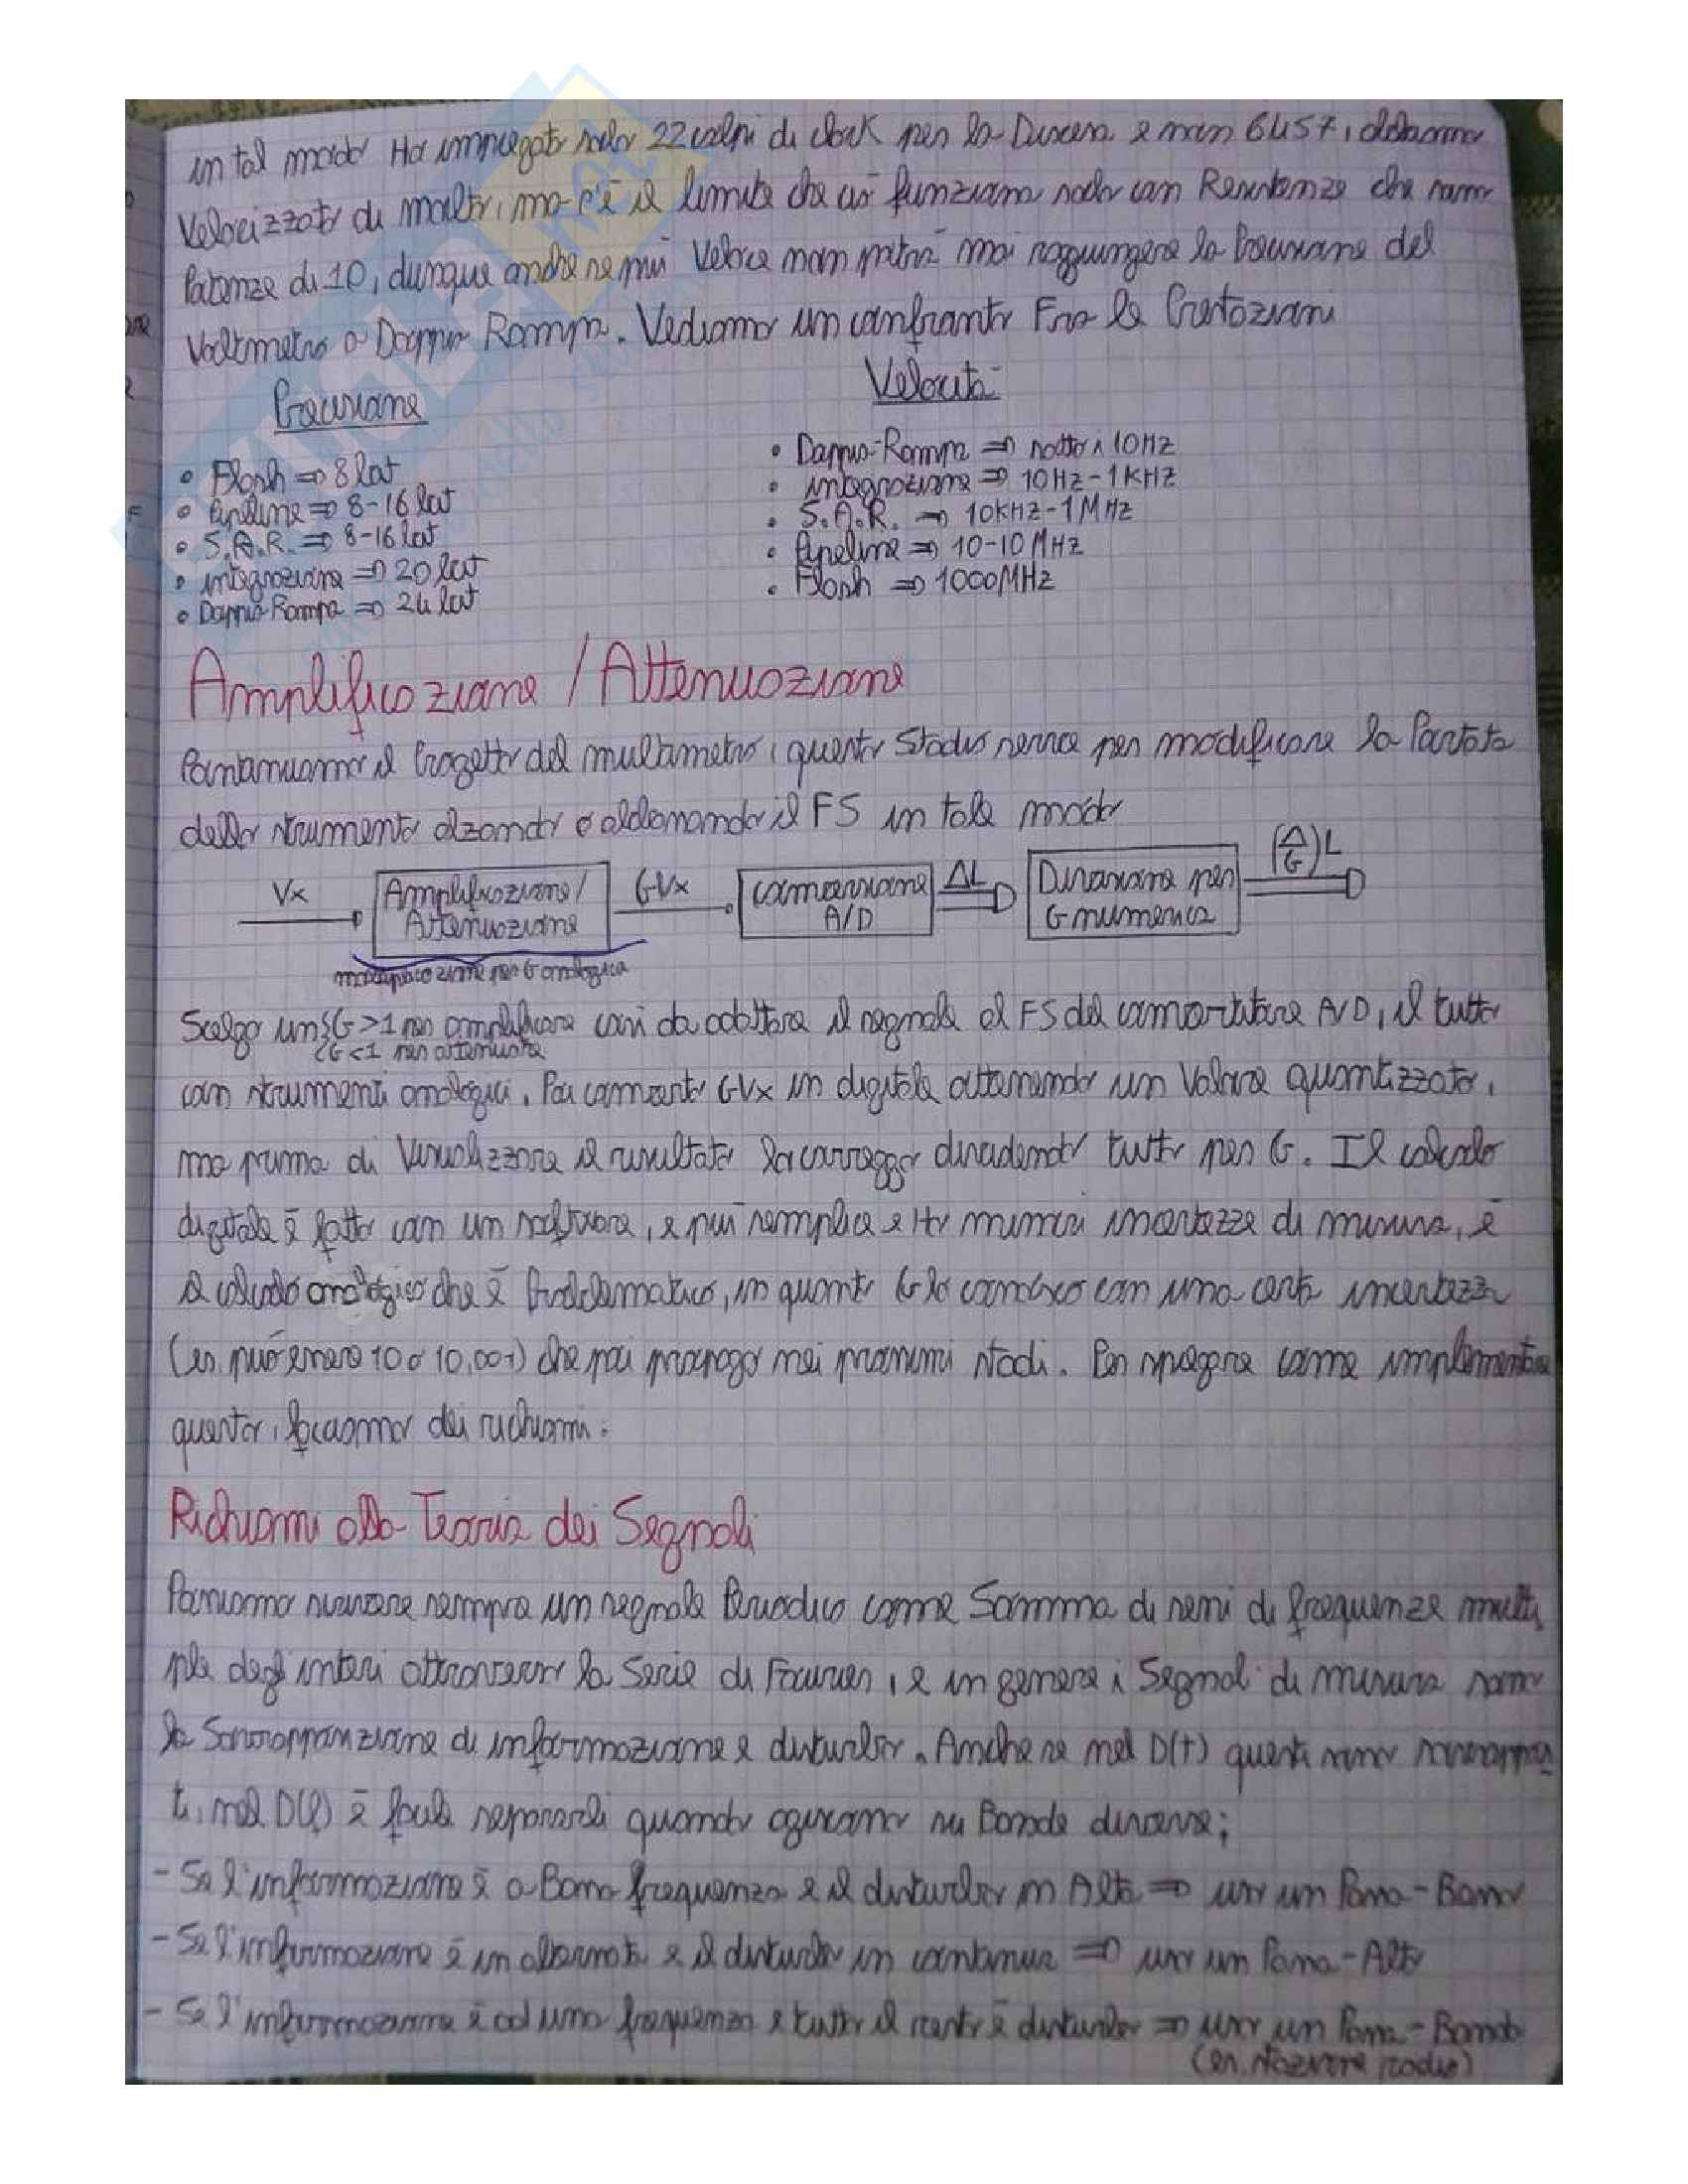 in tal modo Ho impiegato solo 22 colpi di clock per la Discesa e non 6457, abbiamo
Velocizzato di molto, ma c'è il limite che ciò funziona solo con Resistenze che sono
Potenze di 10, dunque anche se più Veloce non potrà mai raggiungere la Precisione del
Voltmetro a Doppia Rampa. Vediamo un confronto Fra le Prestazioni
Precisione
Velocità
• Flash ⇒ 8 bit
• Pipeline ⇒ 8-16 bit
• S.A.R. ⇒ 8-16 bit
• integrazione ⇒ 20 bit
• Doppia Rampa ⇒ 24 bit
• Doppia-Rampa ⇒ sotto i 10Hz
• integrazione ⇒ 10Hz-1KHz
• S.A.R. ⇒ 10KHz-1MHz
• Pipeline ⇒ 10-10MHz
• Flash ⇒ 1000MHz
Amplificazione / Attenuazione
Continuiamo il Progetto del multimetro, questo Stadio serve per modificare la Portata
dello strumento alzando o abbassando il FS in tale modo
Vx
Amplificazione/
Attenuazione
GVx
conversione
A/D
ΔL
Divisione per
G numerica
(Δ/G)L
moltiplicazione per G analogica
Scelgo un G>1 per amplificare così da adattare il segnale al FS del convertitore A/D, il tutto
G<1 per attenuare
con strumenti analogici. Poi converto GVx in digitale ottenendo un Valore quantizzato,
ma prima di Visualizzare il risultato lo correggo dividendo tutto per G. Il calcolo
digitale è fatto con un software, è più semplice e Ho minori incertezze di misura, è
il calcolo analogico che è Problematico, in quanto G lo conosco con una certa incertezza
(es. può essere 10 o 10,001) che poi propago nei prossimi stadi. Per spiegare come implementare
questo, facciamo dei richiami:
Richiami alla Teoria dei Segnali
Possiamo scrivere sempre un segnale Periodico come Somma di seni di frequenze multi
ple degli interi attraverso la Serie di Fourier, e in genere i Segnali di misura sono
la Sovrapposizione di informazione e disturbo. Anche se nel D(t) questi sono sovrappos-
ti, nel D(f) è facile separarli quando agiscono su Bande diverse;
- Se l'informazione è a Bassa frequenza e il disturbo in Alta ⇒ uso un Passa-Basso
- Se l'informazione è in alternata e il disturbo in continua ⇒ uso un Passa-Alto
- Se l'informazione è ad una frequenza e tutto il resto è disturbo ⇒ uso un Passa-Banda
(es. stazione radio)